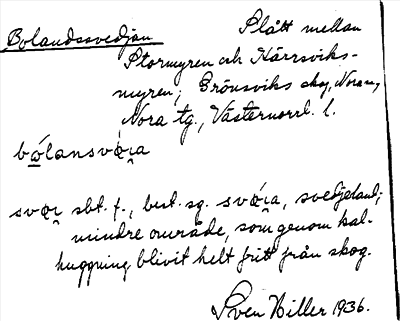 Bolandssvedjan Slått mellan
Stormyren och Kärrsviks-
myren; Grönsviks skog, Nora sn,
Nora tg., Västernorrl. l.
bólansvǿi̯a
svøi̯ sbt. f., best. sg. svǿi̯a, svedjeland;
mindre område, som genom kal-
huggning blivit helt fritt från skog.
Sven Hiller 1936.